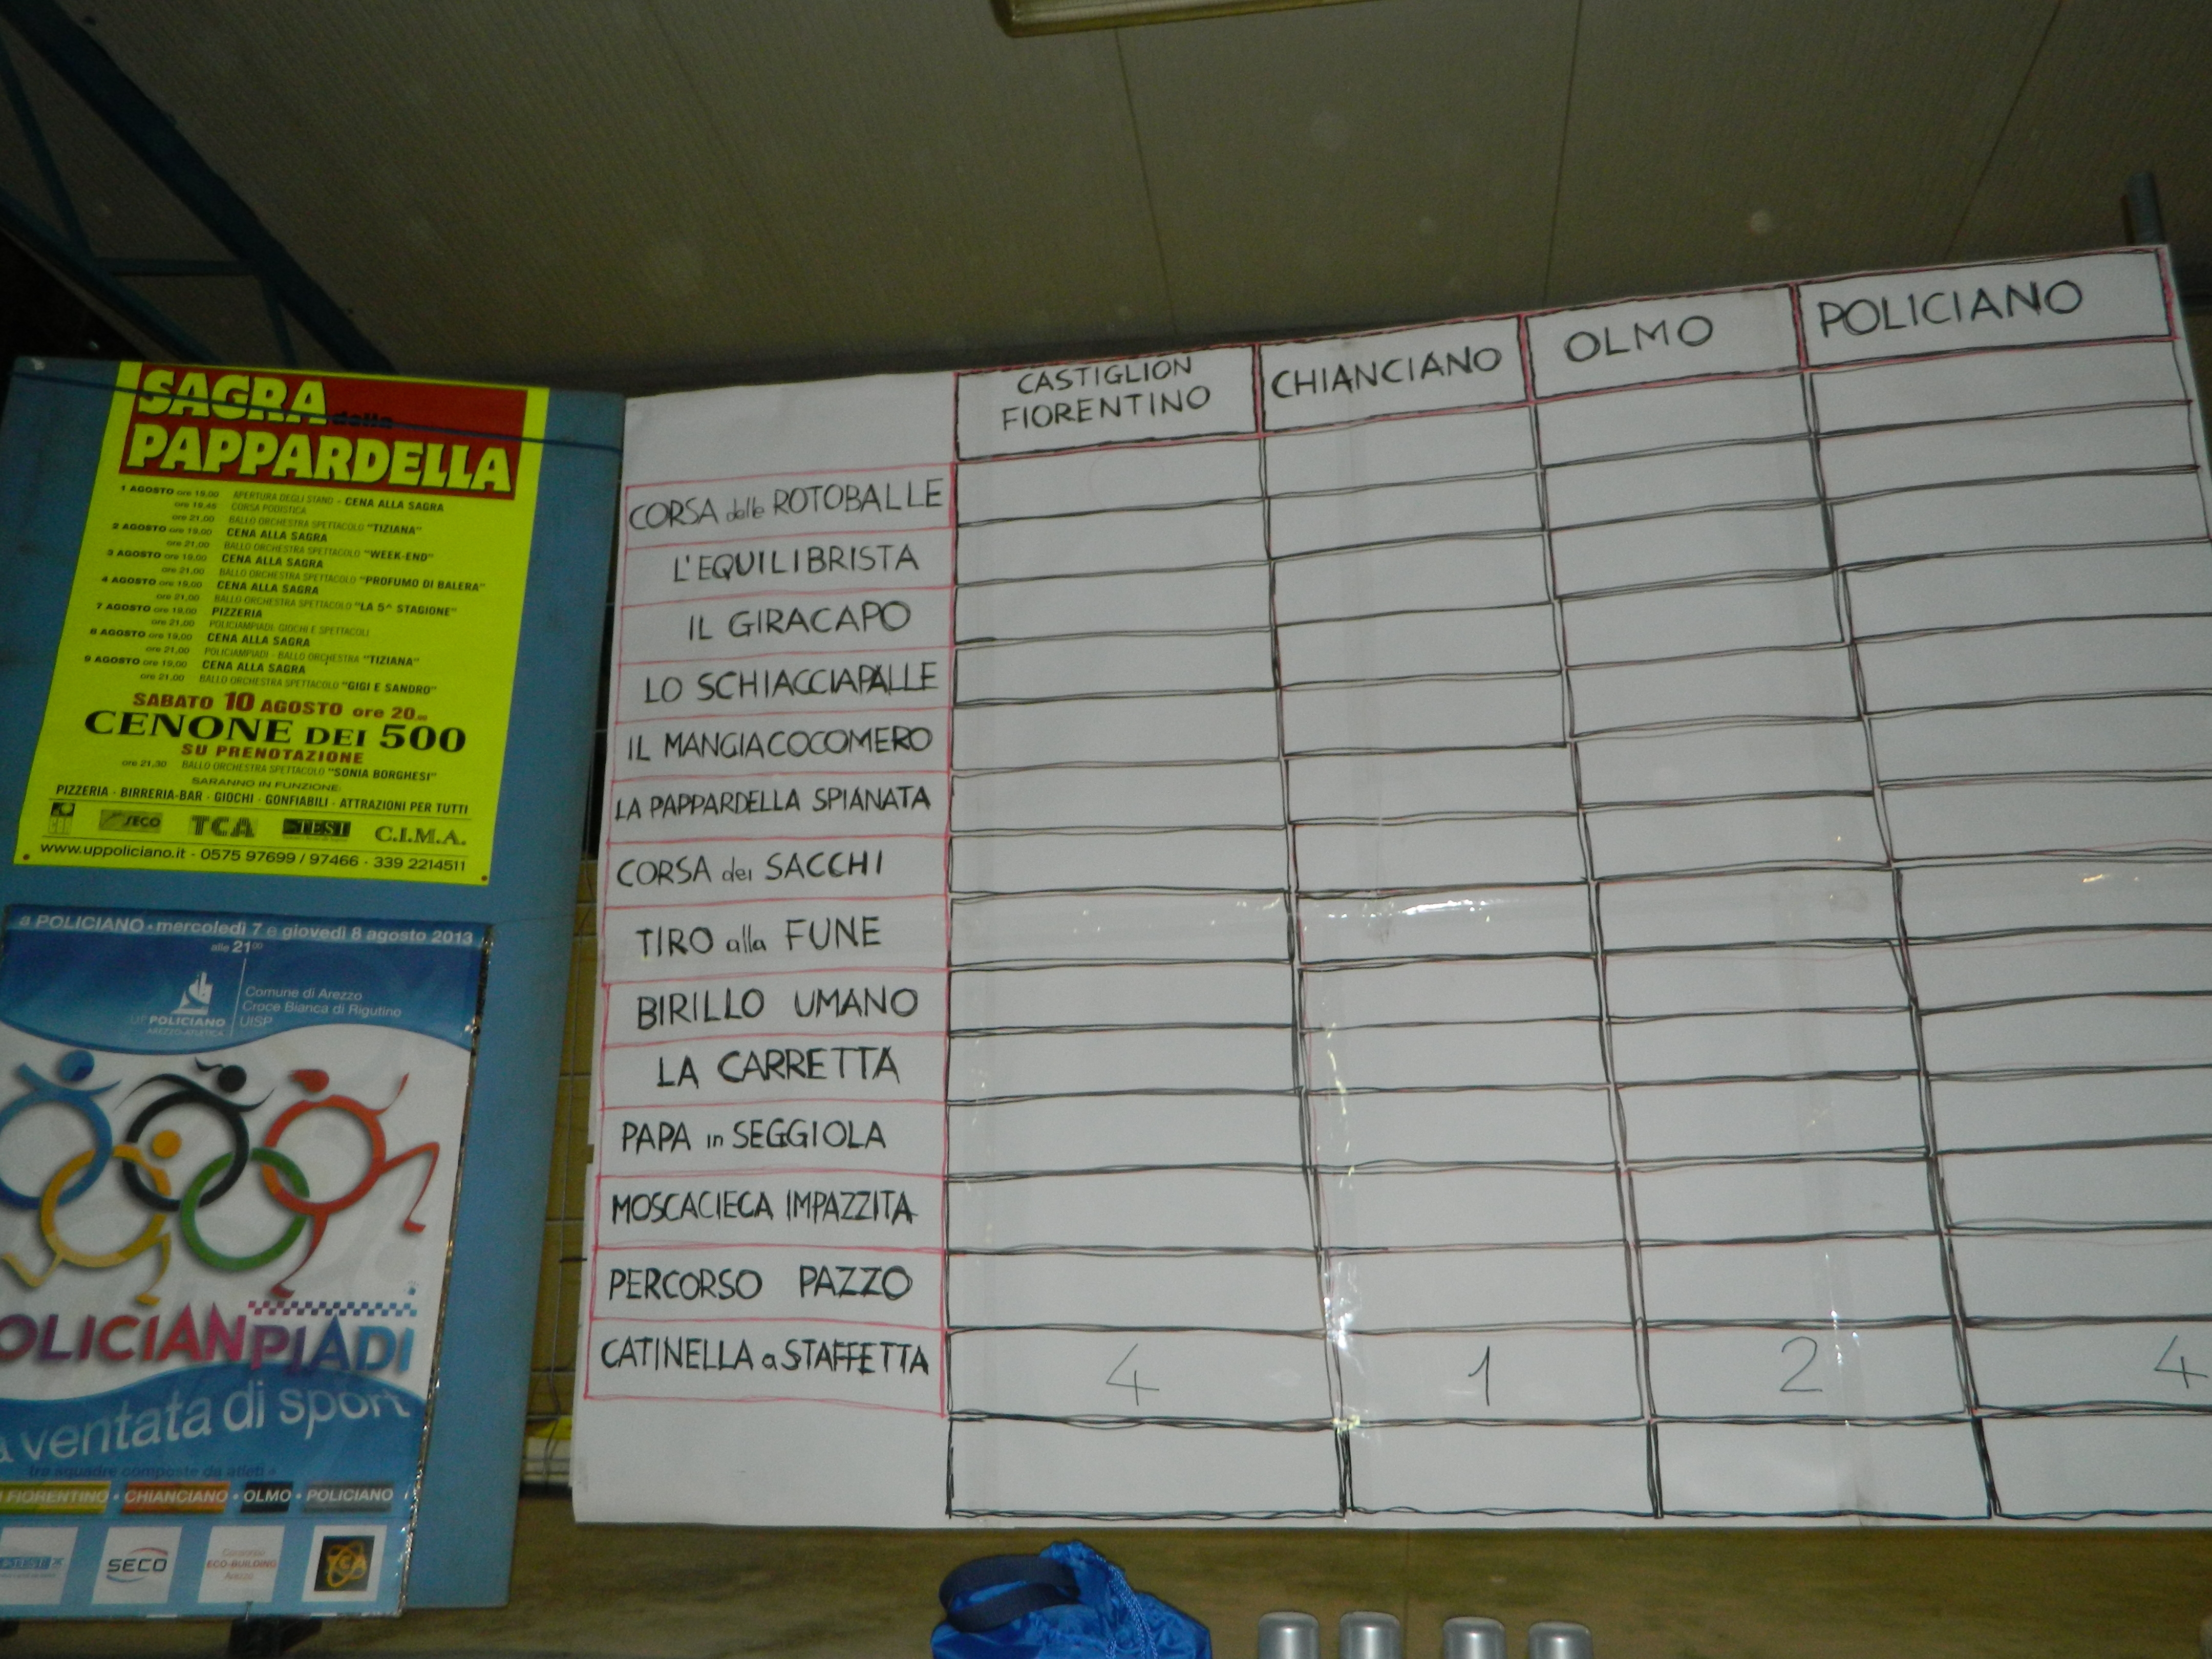 SAGRA della
PAPPARDELLA
1 AGOSTO ore 19,00 APERTURA DEGLI STAND - CENA ALLA SAGRA
ore 19,45 CORSA PODISTICA
ore 21,00 BALLO ORCHESTRA SPETTACOLO "TIZIANA"
2 AGOSTO ore 19,00 CENA ALLA SAGRA
ore 21,00 BALLO ORCHESTRA SPETTACOLO "WEEK-END"
3 AGOSTO ore 19,00 CENA ALLA SAGRA
ore 21,00 BALLO ORCHESTRA SPETTACOLO "PROFUMO DI BALERA"
4 AGOSTO ore 19,00 CENA ALLA SAGRA
ore 21,00 BALLO ORCHESTRA SPETTACOLO "LA 5^ STAGIONE"
7 AGOSTO ore 19,00 PIZZERIA
ore 21,00 POLICIAMPIADI: GIOCHI E SPETTACOLI
8 AGOSTO ore 19,00 CENA ALLA SAGRA
ore 21,00 POLICIAMPIADI - BALLO ORCHESTRA "TIZIANA"
9 AGOSTO ore 19,00 CENA ALLA SAGRA
ore 21,00 BALLO ORCHESTRA SPETTACOLO "GIGI E SANDRO"
SABATO 10 AGOSTO ore 20,00
CENONE DEI 500
SU PRENOTAZIONE
ore 21,30 BALLO ORCHESTRA SPETTACOLO "SONIA BORGHESI"
SARANNO IN FUNZIONE:
PIZZERIA - BIRRERIA-BAR - GIOCHI - GONFIABILI - ATTRAZIONI PER TUTTI
SECO TCA TEST C.I.M.A.
www.uppoliciano.it - 0575 97699 / 97466 - 339 2214511
a POLICIANO • mercoledì 7 e giovedì 8 agosto 2013
alle 2100
UP POLICIANO
AREZZO ATLETICA
Comune di Arezzo
Croce Bianca di Rigutino
UISP
OLICIANPIADI
a ventata di sport
tre squadre composte da atleti
FIORENTINO • CHIANCIANO • OLMO • POLICIANO
TEST SECO ECO-BUILDING Arezzo TCA
CASTIGLION
FIORENTINO
CHIANCIANO
OLMO
POLICIANO
CORSA delle ROTOBALLE
L'EQUILIBRISTA
IL GIRACAPO
LO SCHIACCIAPALLE
IL MANGIACOCOMERO
LA PAPPARDELLA SPIANATA
CORSA dei SACCHI
TIRO alla FUNE
BIRILLO UMANO
LA CARRETTA
PAPA in SEGGIOLA
MOSCACIECA IMPAZZITA
PERCORSO PAZZO
CATINELLA a STAFFETTA 4 1 2 4